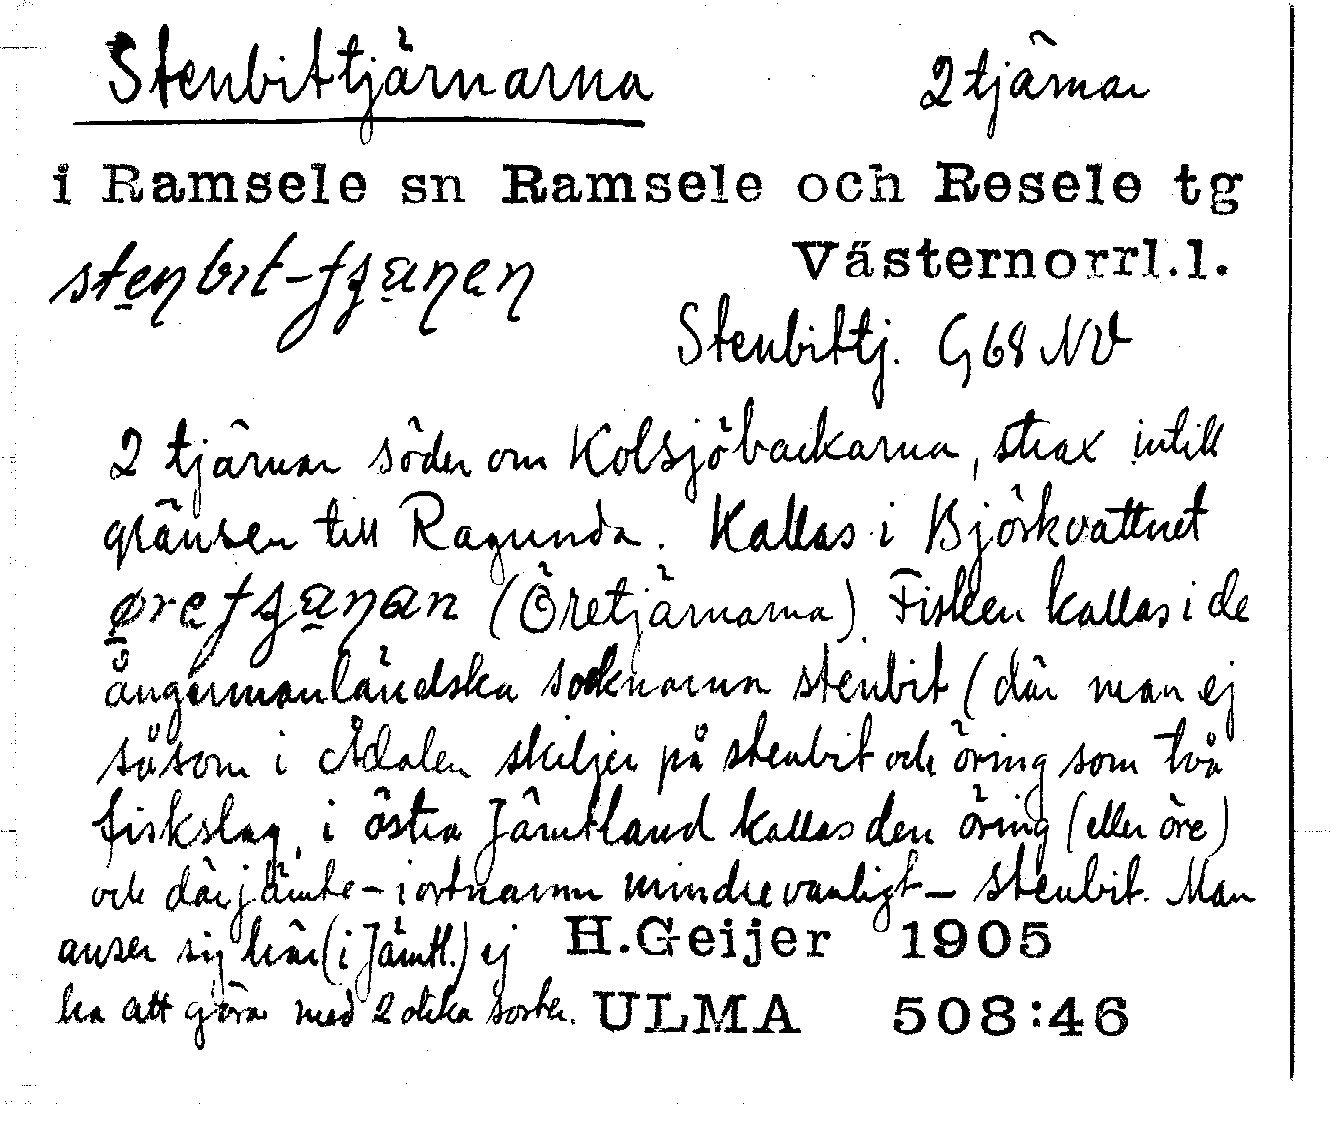 Stenbittjärnarna 2 tjärnar
i Ramsele sn Ramsele och Resele tg
Västernorrl.l.
Stenbittj. G68 NV
2 tjärnar söder om Kolsjöbackarna, strax intill
gränsen till Ragunda. Kallas i Björkvattnet
(Öretjärnarna). Fisken kallas i de
ångermanländska socknarna stenbit (där man ej
såsom i Ådalen skiljer på stenbit och öring som två
fiskslag, i östra Jämtland kallas den öring (eller öre)
och därjämte – i ortnamn mindre vanligt – stenbit. Man
anser sig här (i Jämtl.) ej H.Geijer 1905
ha att göra med 2 olika sorter. ULMA 508:46